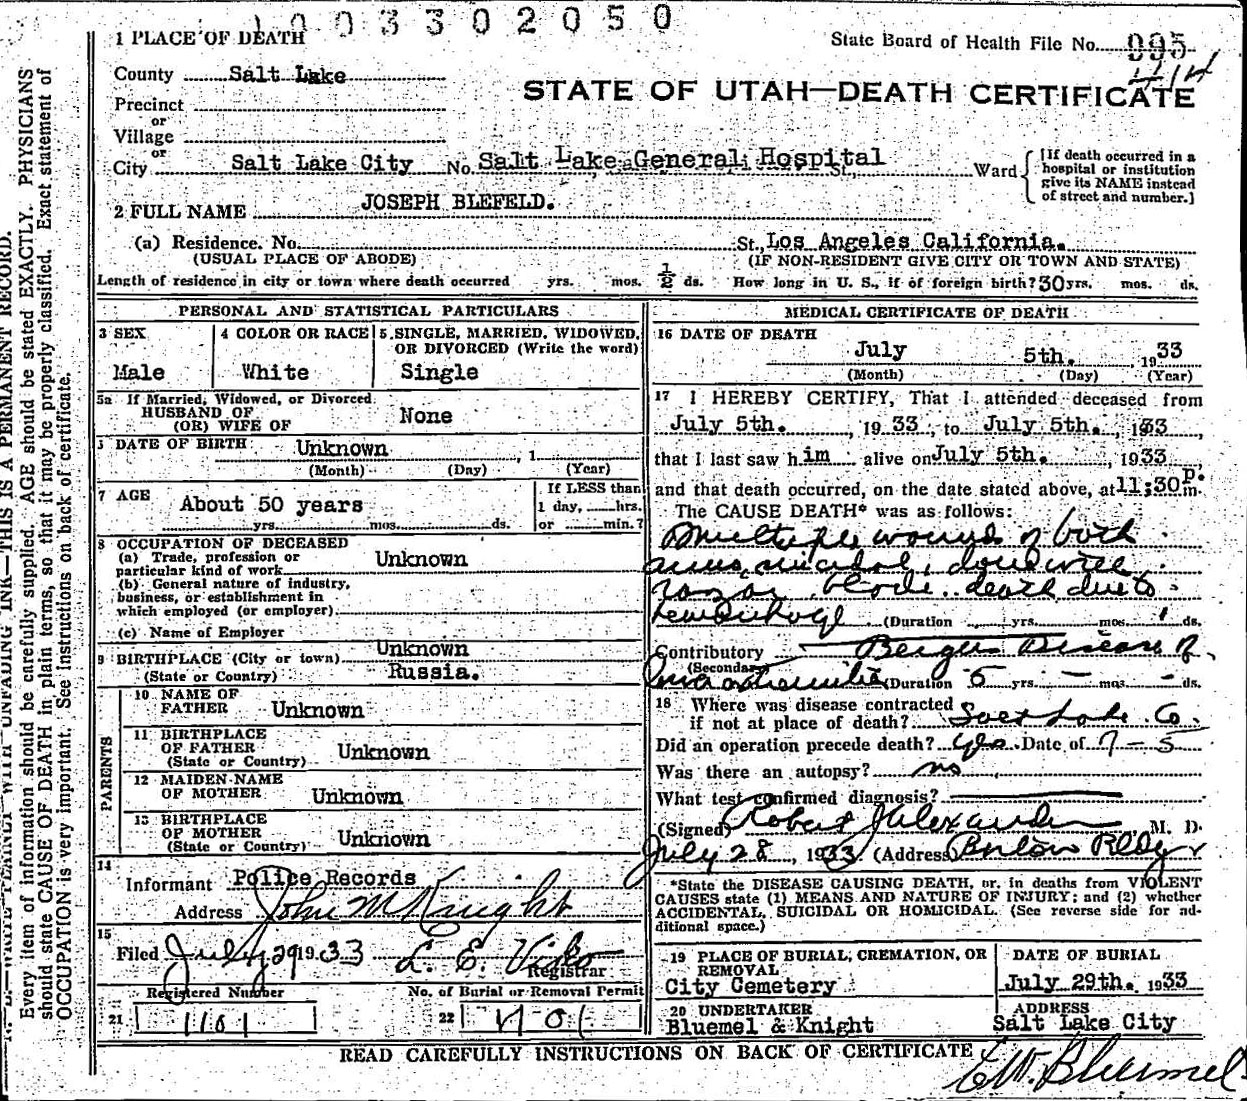 1003302050
1 PLACE OF DEATH
State Board of Health File No. 995
414
County Salt Lake
STATE OF UTAH—DEATH CERTIFICATE
Precinct
or
Village
or
City Salt Lake City No. Salt Lake General Hospital St., Ward
[If death occurred in a
hospital or institution
give its NAME instead
of street and number.]
2 FULL NAME JOSEPH BLEFELD.
(a) Residence. No. St., Los Angeles California.
(USUAL PLACE OF ABODE) (IF NON-RESIDENT GIVE CITY OR TOWN AND STATE)
Length of residence in city or town where death occurred yrs. mos. 1/2 ds. How long in U. S., if of foreign birth? 30 yrs. mos. ds.
PERSONAL AND STATISTICAL PARTICULARS
3 SEX
Male
4 COLOR OR RACE
White
5 SINGLE, MARRIED, WIDOWED,
OR DIVORCED (Write the word)
Single
5a If Married, Widowed, or Divorced
HUSBAND OF
(OR) WIFE OF None
DATE OF BIRTH Unknown , 1
(Month) (Day) (Year)
7 AGE About 50 years
yrs. mos. ds.
If LESS than
1 day, hrs.
or min.?
8 OCCUPATION OF DECEASED
(a) Trade, profession or
particular kind of work Unknown
(b) General nature of industry,
business, or establishment in
which employed (or employer)
(c) Name of Employer
Unknown
9 BIRTHPLACE (City or town)
(State or Country) Russia.
PARENTS
10 NAME OF
FATHER Unknown
11 BIRTHPLACE
OF FATHER
(State or Country) Unknown
12 MAIDEN NAME
OF MOTHER Unknown
13 BIRTHPLACE
OF MOTHER
(State or Country) Unknown
14
Informant Police Records
Address John McKnight
15
Filed July 29 1933 L. E. Viko
Registrar
Registered Number No. of Burial or Removal Permit
21 1101 22
MEDICAL CERTIFICATE OF DEATH
16 DATE OF DEATH
July 5th. 1933
(Month) (Day) (Year)
17 I HEREBY CERTIFY, That I attended deceased from
July 5th. , 1933, to July 5th. , 1933,
that I last saw him alive on July 5th. , 1933
and that death occurred, on the date stated above, at 11:30 P. m.
The CAUSE DEATH* was as follows:
Multiple wounds of both
arms, suicidal, done with
razor blade. death due to
hemorrhage (Duration yrs. mos. 1 ds.
Contributory Bergers Disease of
(Secondary)
extremities (Duration 5 yrs. — mos. - ds.
18 Where was disease contracted
if not at place of death? Salt Lake Co.
Did an operation precede death? yes Date of 7-5
Was there an autopsy? no
What test confirmed diagnosis?
(Signed) Robert J Alexander, M. D.
July 28, 1933 (Address) Boston Bldg
*State the DISEASE CAUSING DEATH, or, in deaths from VIOLENT
CAUSES state (1) MEANS AND NATURE OF INJURY; and (2) whether
ACCIDENTAL, SUICIDAL OR HOMICIDAL. (See reverse side for ad-
ditional space.)
19 PLACE OF BURIAL, CREMATION, OR
REMOVAL
City Cemetery
DATE OF BURIAL
July 29th. 1933
20 UNDERTAKER
Bluemel & Knight
ADDRESS
Salt Lake City
READ CAREFULLY INSTRUCTIONS ON BACK OF CERTIFICATE
E.W. Bluemel
WRITE PLAINLY WITH UNFADING INK—THIS IS A PERMANENT RECORD.
Every item of information should be carefully supplied. AGE should be stated EXACTLY. PHYSICIANS
should state CAUSE OF DEATH in plain terms, so that it may be properly classified. Exact statement of
OCCUPATION is very important. See instructions on back of certificate.